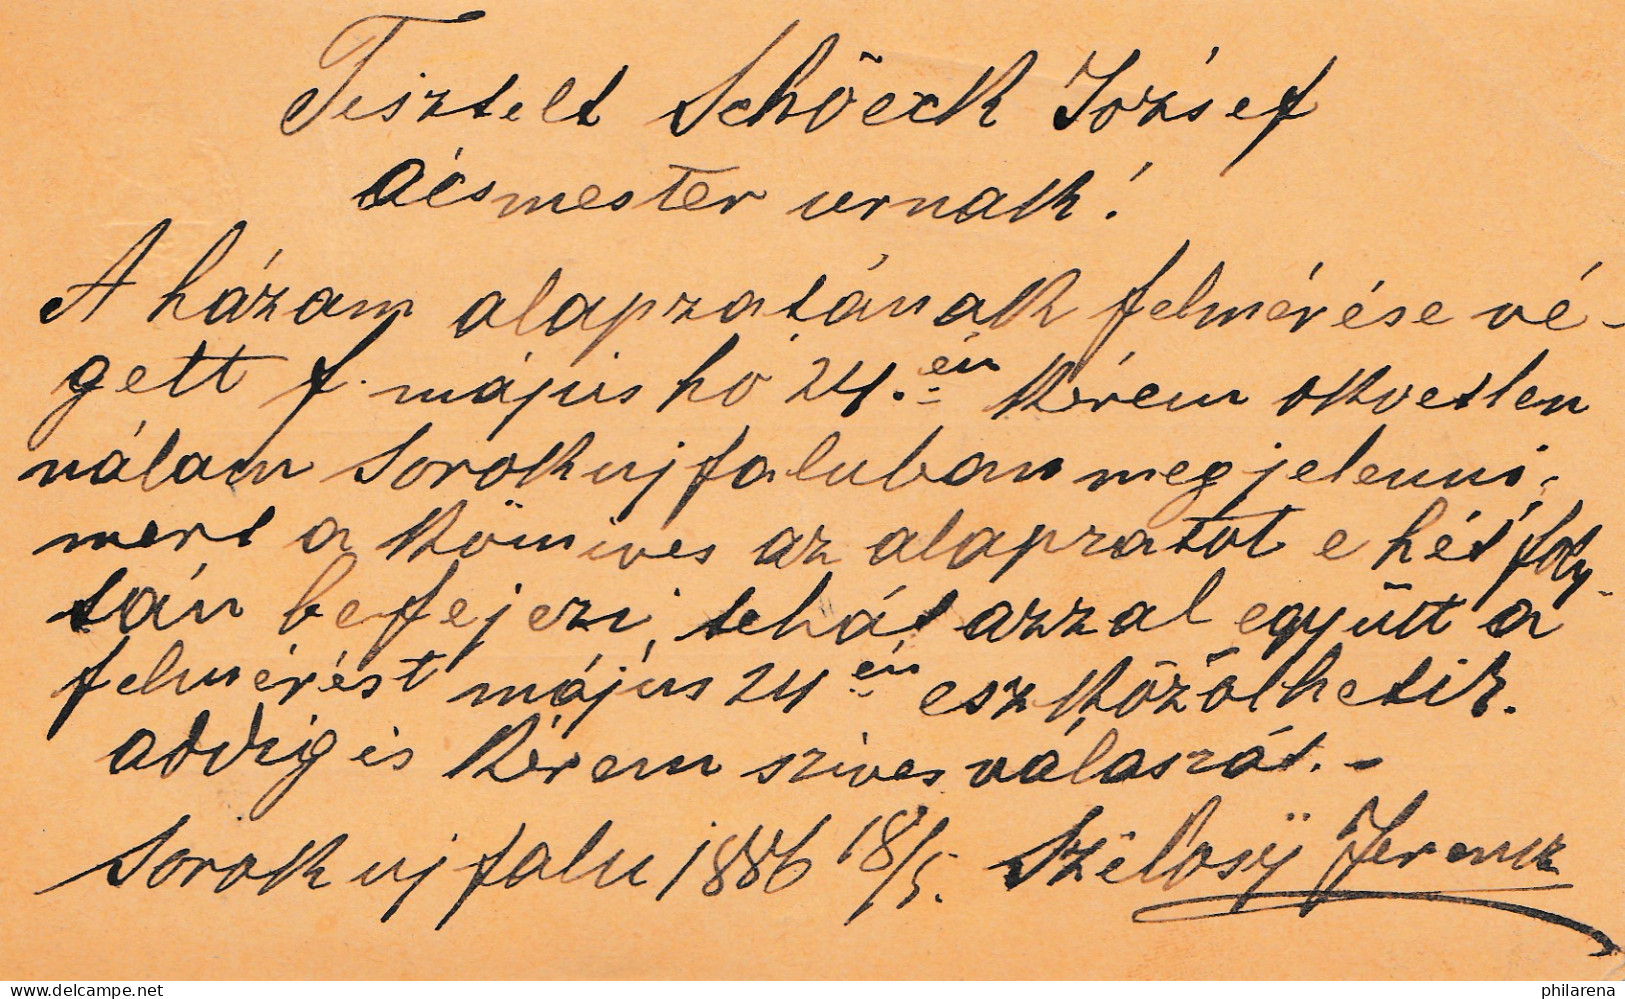 Tisztelt Schöeck József
ácsmester urnak!
A házam alapzatának felmérése vé-
gett f. május hó 24.én kérem okvetlen
nálam Sorokujfaluban megjelenni,
mert a kőmives az alapzatot e hét foly-
tán befejezi, tehát azzal együtt a
felmérést május 24én eszközölhetik.
addig is kérem szives válaszát.-
Sorokujfalu 1886 18/5. Ferencz
delcampe.net
philarena